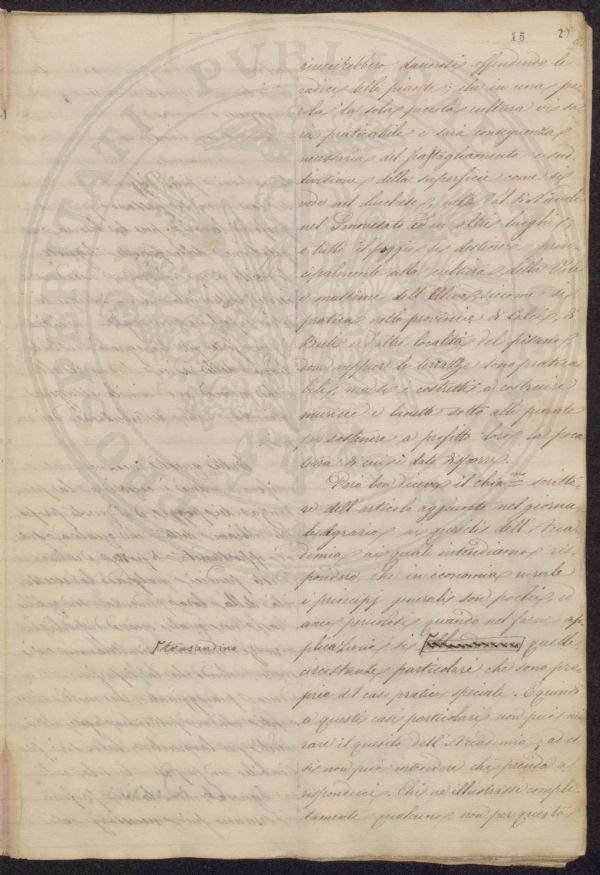 15
riuscirebbero dannosi offendendo le
radici delle piante; che in una pa-
rola la sola piccola cultura vi sa-
rà praticabile e sarà conseguenza
necessaria del frastagliamento e sud-
divisione della superficie come si
vede nel lucchese, nella Val di Nievole
nel Genovesato ed in altri luoghi;
e tutto il poggio si destinerà prin-
cipalmente alla cultura della Vite
e massime dell'Ulivo, siccome si
pratica nelle provincie di Calci, di
Buti e d'altre località del pisano,
dove neppur le terrazze sono pratica-
bili, ma si è costretti a costruire
muricce e lunette sotto alle piante
per sostenere a profitto loro la poca
terra di cui è dato disporre.
Però ben diceva il chia.mo scritto-
re dell'articolo aggiunto nel giorna-
le Agrario ai quesiti dell'Acca-
demia ai quali intendiamo ris-
pondere, che in economia rurale
i principj generali son pochi, ed
anco pericolosi quando nel farne ap-
plicazione si quelle
trasandino
circostanze particolari che sono pro-
prie del caso pratico speciale. E quindi
a questi casi particolari non può mi-
rare il quesito dell'Accademia, ad es-
si non può intendere chi prenda a
rispondervi. Chi ne illustrasse comple-
tamente qualcuno non per questo